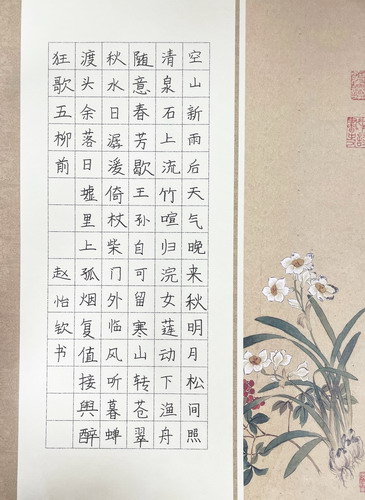 空山新雨后天气晚来秋明月松间照
清泉石上流竹喧归浣女莲动下渔舟
随意春芳歇王孙自可留寒山转苍翠
秋水日潺湲倚杖柴门外临风听暮蝉
渡头余落日墟里上孤烟复值接舆醉
狂歌五柳前 赵怡钦书